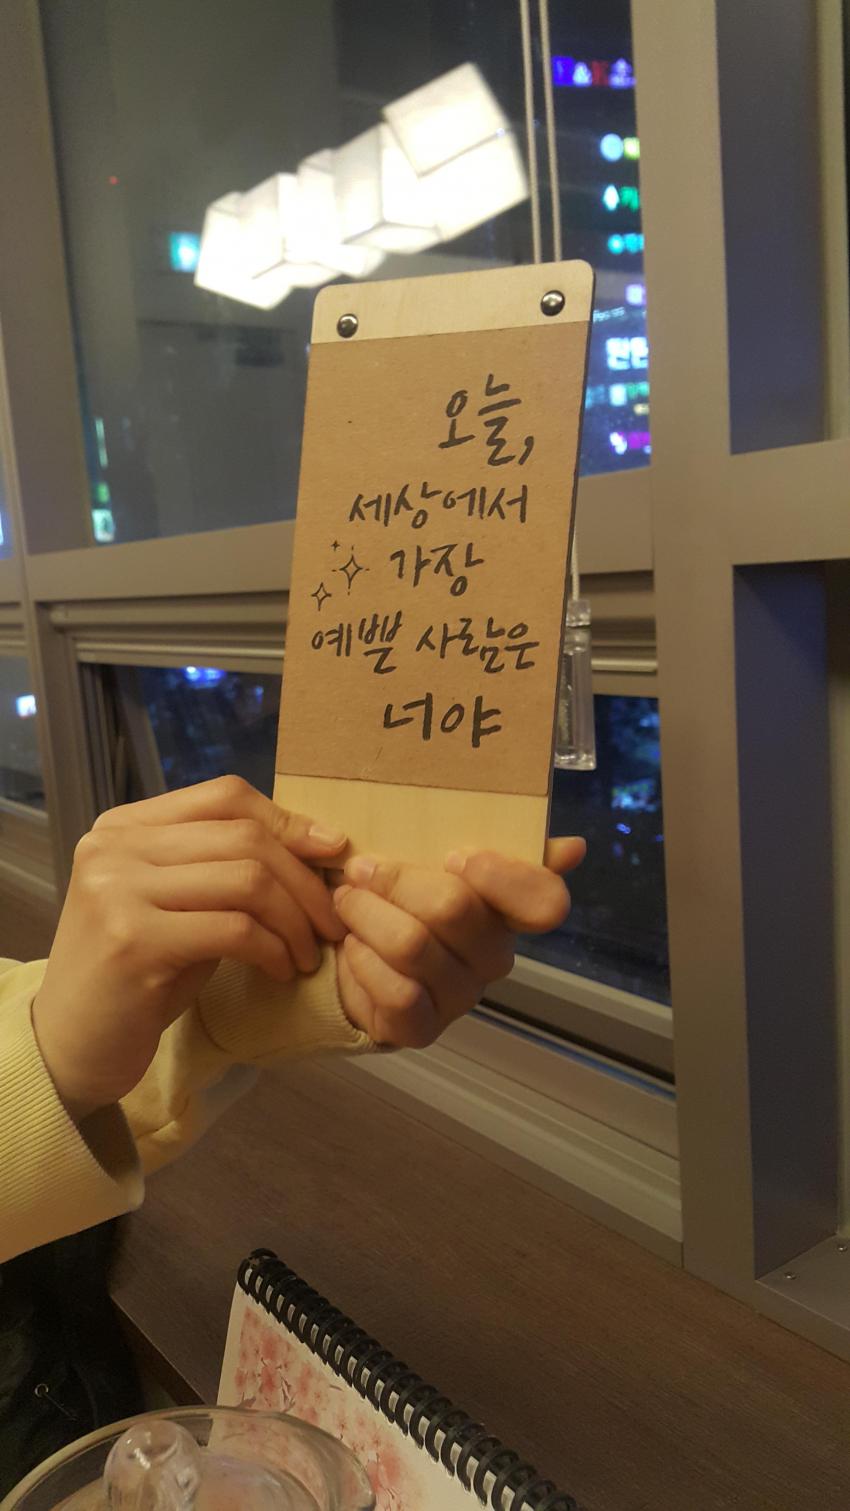 오늘,
세상에서
가장
예쁠 사람은
너야